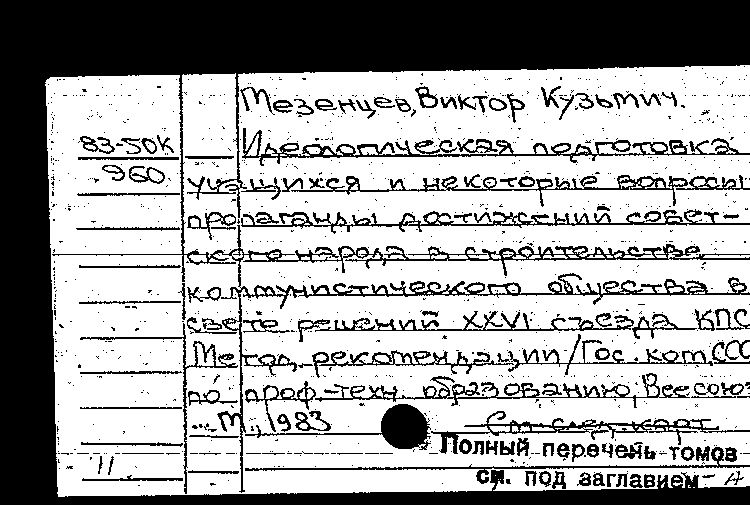 Мезенцев, Виктор Кузьмич.
83-50К Идеологическая подготовка
960 учащихся и некоторые вопросы
пропаганды достижений совет-
ского народа в строительстве
коммунистического общества в
свете решений XXVI съезда КПС
Метод. рекомендации / Гос. ком. ССС
по проф.-техн. образованию, Всесоюз
... М., 1983 См. след. карт.
Полный перечень томов
11 см. под заглавием - А